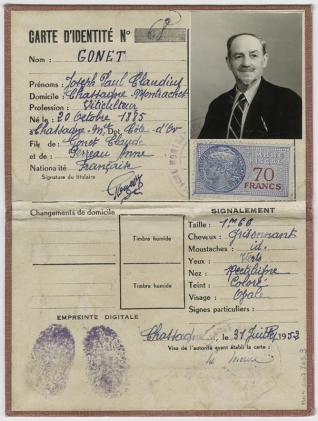 CARTE D'IDENTITÉ N° 68
Nom : GONET
Prénoms : Joseph Paul Claudius
Domicile : Chassagne Montrachet
Profession : Viticulteur
Né le : 20 Octobre 1885
Chassagne-Mt Dpt Côte d'Or
Fils de : Gonet Claude
et de : Perreau Anne
Nationalité Française
Signature du titulaire
70
FRANCS
Changements de domicile
Timbre humide
Timbre humide
SIGNALEMENT
Taille : 1m66
Cheveux : Grisonnant
Moustaches : id.
Yeux : Verts
Nez : Rectiligne
Teint : Coloré
Visage : Ovale
Signes particuliers :
EMPREINTE DIGITALE
Chassagne, le 31 Juillet 1953
Visa de l'autorité ayant établi la carte :